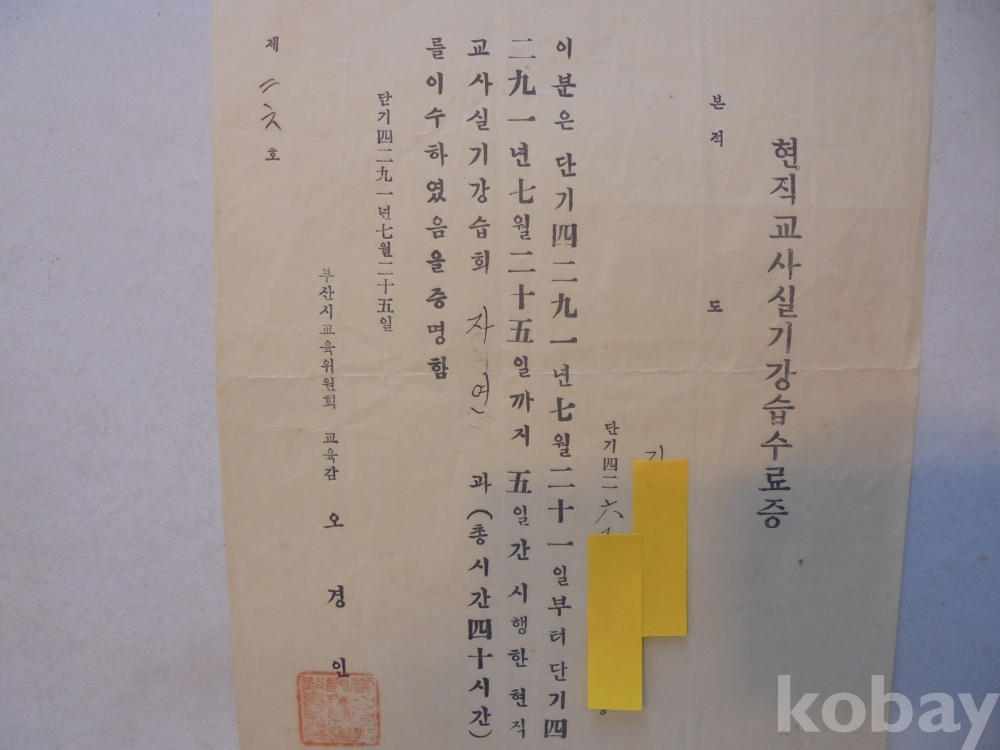 현직교사실기강습수료증
본적 도
단기四二六
이분은 단기四二九一년七월二十一일부터단기四
二九一년七월二十五일까지 五일간 시행한 현직
교사실기강습회 자연 과(총시간四十시간)
를이수하였음을증명함
단기四二九一년七월二十五일
부산시교육위원회 교육감 오경인
제 二六 호
kobay